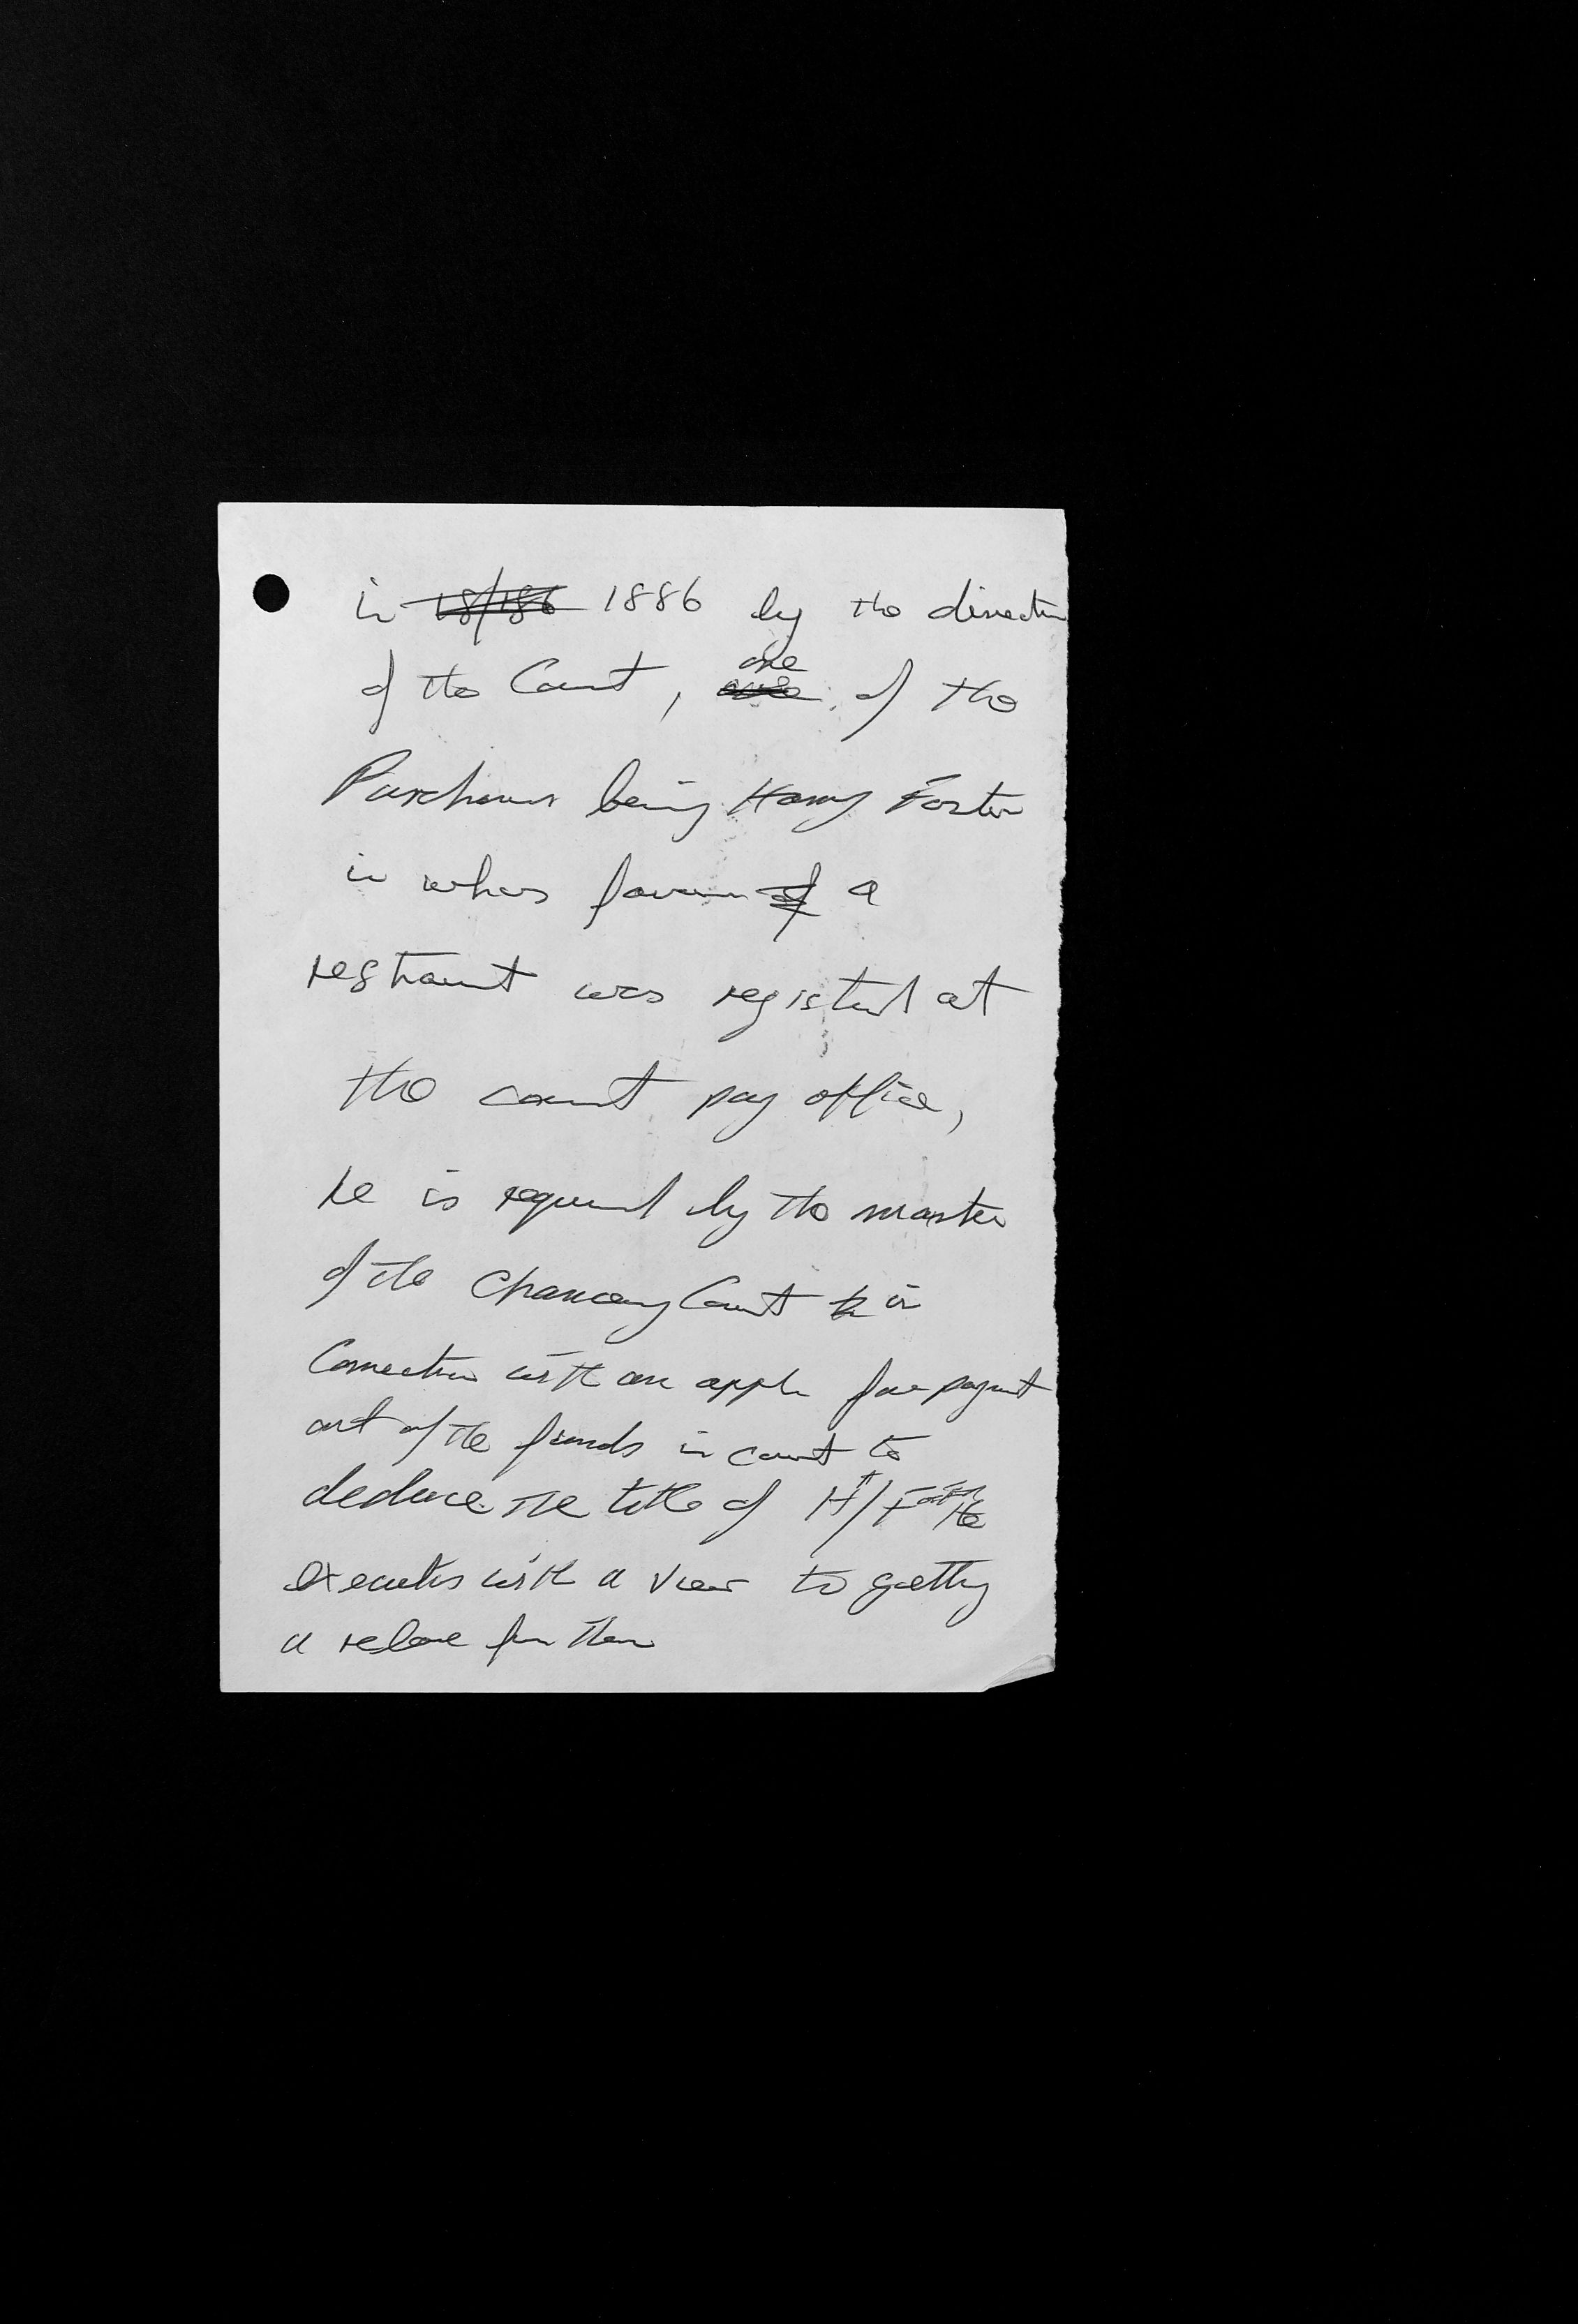 in 18/186 1886 by the direction
of the Court, one of the
Purchasers being Harry Foster
in whos favour of a
restraint was registered at
the court pay office,
he is required by the master
of the Chancery Court to in
Connection with an appln for payment
out of the funds in court to
deduce the title of H/F
executors with a view to getting
a release from them